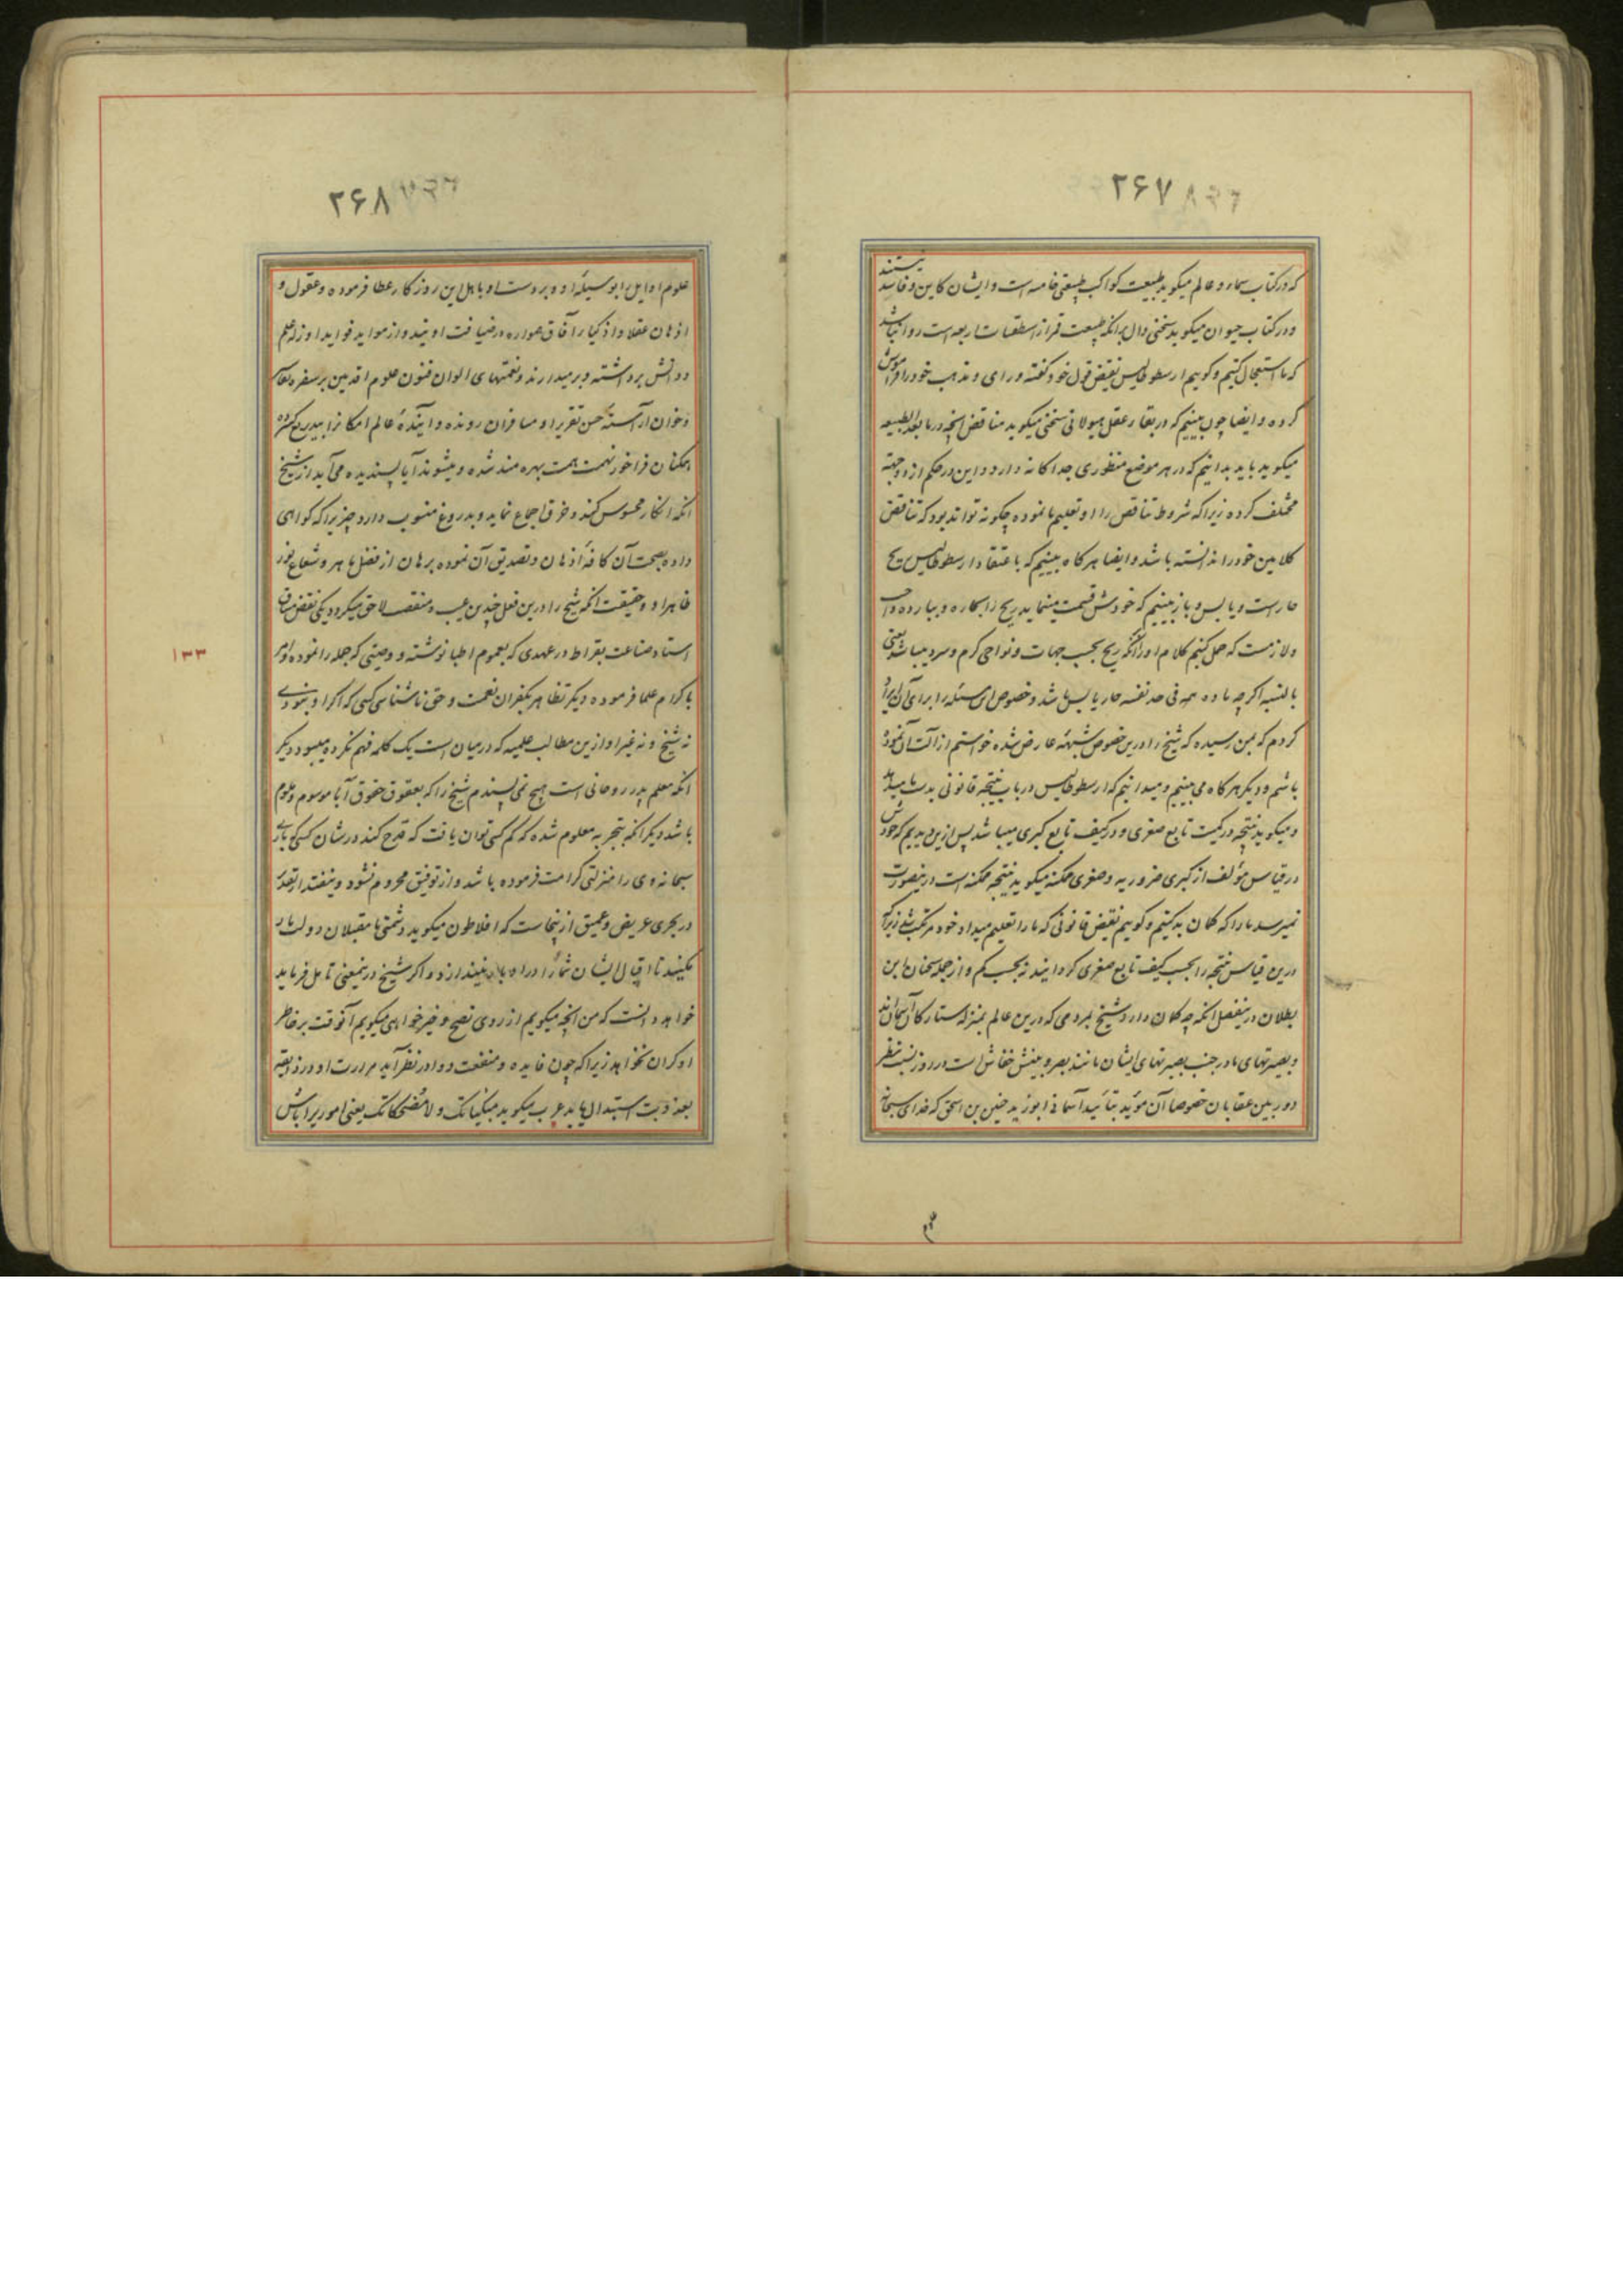 ۲۶۷
که در کتاب سماء و عالم میگوید طبیعت کواکب طبیعتی خامسه است و ایشان کاین و فاسد نیستند
و در کتاب حیوان میگوید سخنی دال برآنکه طبیعت قمر از اسطقسات اربعه است روا نباشد
که ما استعجال کنیم و گوییم ارسطوطالیس نقیض قول خود گفته و رای و مذهب خود را فراموش
کرده و ایضا چون ببینیم که در بقاء عقل هیولانی سخنی میگوید مناقض آنچه در ما بعد الطبیعه
میگوید باید بدانیم که در هر موضع منظوری جداگانه دارد و این در حکم از دو جهة
مختلف کرده زیرا که شروط تناقض را او تعلیم ما نموده چگونه تواند بود که تناقض
کلامین خود را ندانسته باشد و ایضا هرگاه ببینیم که باعتقاد ارسطوطالیس ریح
حار است و یابس و باز ببینیم که خودش قسمت مینماید ریح را بحاره و بارده واجب
و لازمست که حمل کنیم کلام او را برآنکه ریح بحسب جهات و نواحی گرم و سرد میباشد یعنی
بالنسبه اگرچه ماده همه فی حد نفسه حار یابس باشد و خصوص این مسئله را برای آن ایراد
کردم که بمن رسیده که شیخ را درین خصوص شبهه عارض شده خواستم ازالت آن نموده
باشم و دیگر هرگاه می بینیم و میدانیم که ارسطوطالیس در باب نتیجه قانونی بدست ما میدهد
و میگوید نتیجه در کمیت تابع صغری و در کیف تابع کبری میباشد پس ازین دیدیم که خودش
در قیاس مؤلف از کبری ضروریه و صغری ممکنه میگوید نتیجه ممکنه است درینصورت
نمیرسد ما را که گمان بد کنیم و گوییم نقیض قانونی که ما را تعلیم میداد خود مرتکب شد زیرا که
درین قیاس نتیجه را بحسب کیف تابع صغری گردانید نه بحسب کم و از جمله سخنان ابن
بطلان درینفصل آنکه چه گمان دارد شیخ بمردمی که درین عالم بمنزله ستارگان آسمان‌اند
و بصیرتهای ما در جنب بصیرتهای ایشان مانند بصر و بینش خفاش است در روز نسبت بنظر
دوربین عقابان خصوصا آن مؤید بتأیید آسمانی ابو زید حنین بن اسحق که خدای سبحانه
۲۶۸
علوم اوایل را بوسیله او و بر دست او باهل این روزگار عطا فرموده و عقول و
اذهان عقلا و اذکیاء آفاق همواره در ضیافت اویند و از مواید فواید او زله علم
و دانش برداشته و بر میدارند و نعمتهای الوان فنون علوم اقدمین بر سفره
و خوان آراسته حسن تقریر او مسافران رونده و آینده عالم امکانرا بیدریغ کشیده
همکنان فراخور نهمت همت بهره مند شده و میشوند آیا پسندیده می آید از شیخ
آنکه انکار محسوس کند و خرق اجماع نماید و بدروغ منسوب دارد چیزی را که گواهی
داده بصحت آن کافه اذهان و تصدیق آن نموده برهان از فضل باهر و شعاع نور
ظاهر او و حقیقت آنکه شیخ را درین فعل چندین عیب و منقصت لاحق میگردد یکی نقض میثاق
استاد صناعت بقراط در عهدی که بعموم اطبا نوشته و وصیتی که جمله را نموده و امر
باکرام علما فرموده دیگر تظاهر بکفران نعمت و حق ناشناسی کسی که اگر او نبودی
نه شیخ و نه غیر او ازین مطالب علمیه که در میان است یک کلمه فهم نکرده میبود دیگر
آنکه معلم پدر روحانی است هیچ نمی پسندم شیخ را که بعقوق حقوق آبا موسوم و ملوم
باشد دیگر آنکه بتجربه معلوم شده که کم کسی توان یافت که قدح کند در شان کسی که باری
سبحانه وی را منزلتی کرامت فرموده باشد و از توفیق محروم نشود و نیفتد
در بحری عریض و عمیق ازینجاست که افلاطون میگوید دشمنی با مقبلان دولت یار
مکنید تا اقبال ایشان شما را در ادبار نیندازد و اگر شیخ درینمعنی تامل فرماید
خواهد دانست که من آنچه میگویم از روی نصح و خیرخواهی میگویم آنوقت بر خاطر
او گران نخواهد زیرا که چون فایده و منفعت دوا در نظر آید مرارت او در ذایقه
بعذوبت استبدال یابد عرب میگوید مبکیاتک و لا مضحکاتک یعنی امور را باش
۱۳۳